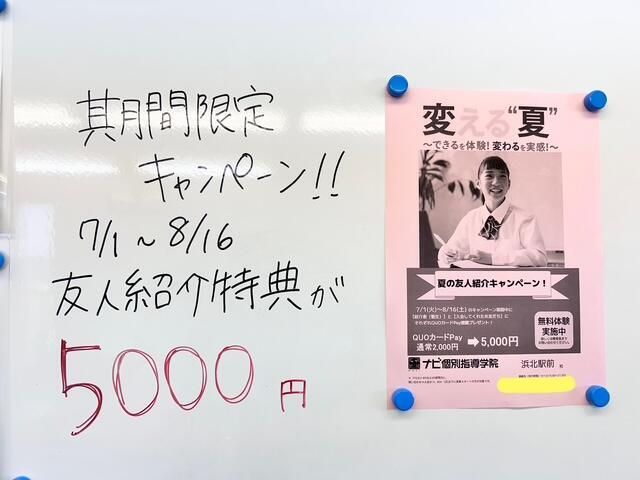 期間限定
キャンペーン!!
7/1～8/16
友人紹介特典が
5000円
変える“夏”
～できるを体験!変わるを実感!～
夏の友人紹介キャンペーン!
7/1(火)～8/16(土)のキャンペーン期間中に
【紹介者(塾生)】と【入会してくれたお友だち】に
それぞれQUOカードPay増額プレゼント!
QUOカードPay
通常2,000円 ➡5,000円
無料体験
実施中
ナビ個別指導学院 浜北駅前 校